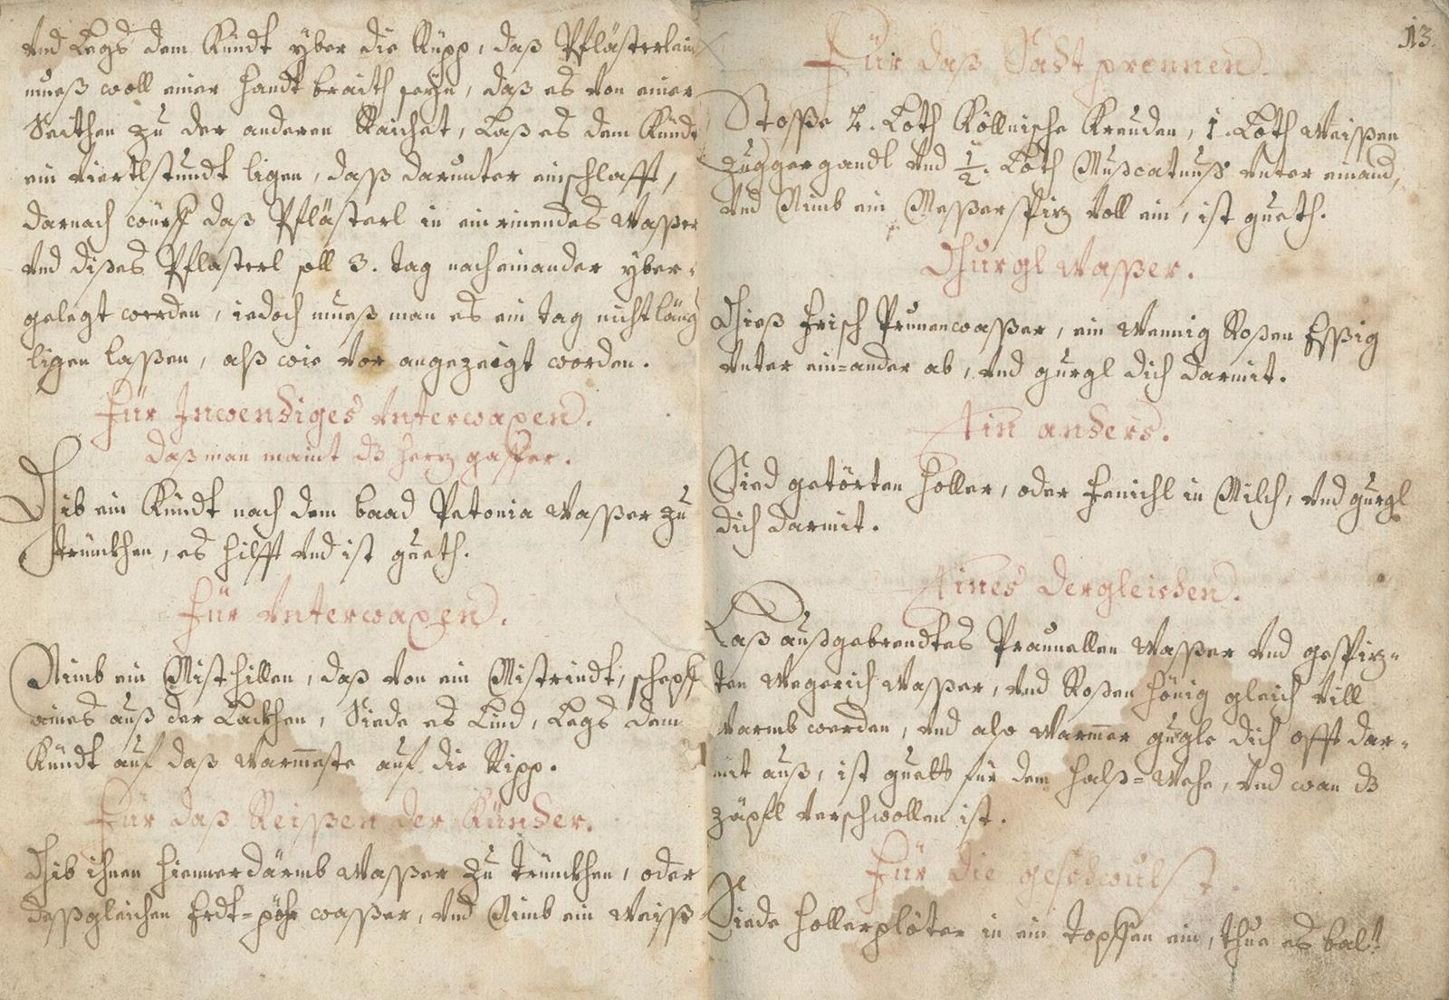 vnd Legs dem Kündt yber die Rüpp, daß Pflästerlein
mueß woll einer handt braith seyn, daß es von einer
Seithen zu der anderen Raichet, Laß es dem Kündt
ein viertlstundt ligen, daß darunter einschlafft,
darnach würff daß Pflästerl in ein rinendes wasser
vnd dißes Pflasterl soll 3. tag nacheinander yber-
gelegt werden, iedoch mueß man es ein tag nicht läng
ligen lassen, alß wie vor angezeigt worden.
Für Inwendiges vnterwaxen.
daß man maint dz herz gesper.
Gib ein Kündt nach dem baad Petonia wasser zu
trünckhen, es hilfft vnd ist gueth.
Für vnterwaxen.
Nimb ein Misthillen, daß von ein Mistrindt, schepff
aines auß der Lackhen, Siede es Lind, Legs dem
Kündt auf daß warmeste auf die Ripp.
Für daß Reissen der Künder.
Gib ihnen hiennerdärmb wasser zu trünckhen, oder
deßgleichen Erdt-pöhr wasser, vnd Nimb ein weiss
13.
Für daß Sadt prennen.
Stosse 2. Loth Köllnische Kreuden, 1. Loth weissen
Zuggergandl vnd 1/2. Loth Mußcatnuß vnter einand,
vnd Nimb ein Messerspiz voll ein, ist gueth.
Ghurgl wasser.
Gieß frisch Prunenwasser, ein wennig Rosen Essig
vnter ein-ander ab, vnd gurgl dich darmit.
Ain anders.
Sied getörten holler, oder fenichl in Milch, vnd gurgl
dich darmit.
Aines dergleichen.
Laß außgebrendtes Praunellen wasser vnd gespiz-
ten wegerich wasser, vnd Rosen hönig gleich vill
warmb werden, vnd also warmer gurgle dich offt dar-
mit auß, ist guett für dem halß-wehe, vnd wan dz
zäpfl verschwollen ist.
Für die geschwulst.
Siede hollerplöter in ein topffen ein, thue es balt